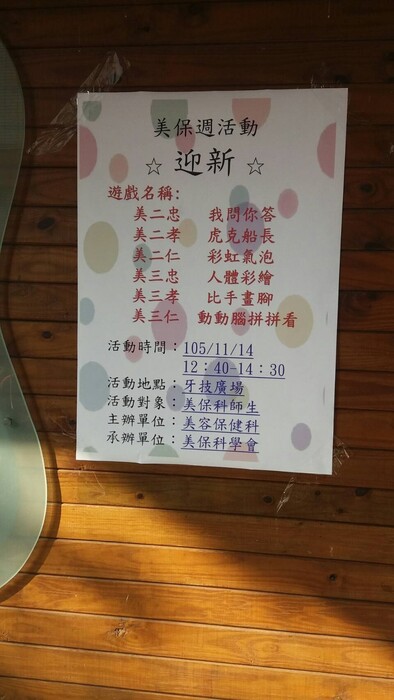 美保週活動
☆ 迎新 ☆
遊戲名稱:
美二忠 我問你答
美二孝 虎克船長
美二仁 彩虹氣泡
美三忠 人體彩繪
美三孝 比手畫腳
美三仁 動動腦拼拼看
活動時間：105/11/14
12：40-14：30
活動地點：牙技廣場
活動對象：美保科師生
主辦單位：美容保健科
承辦單位：美保科學會